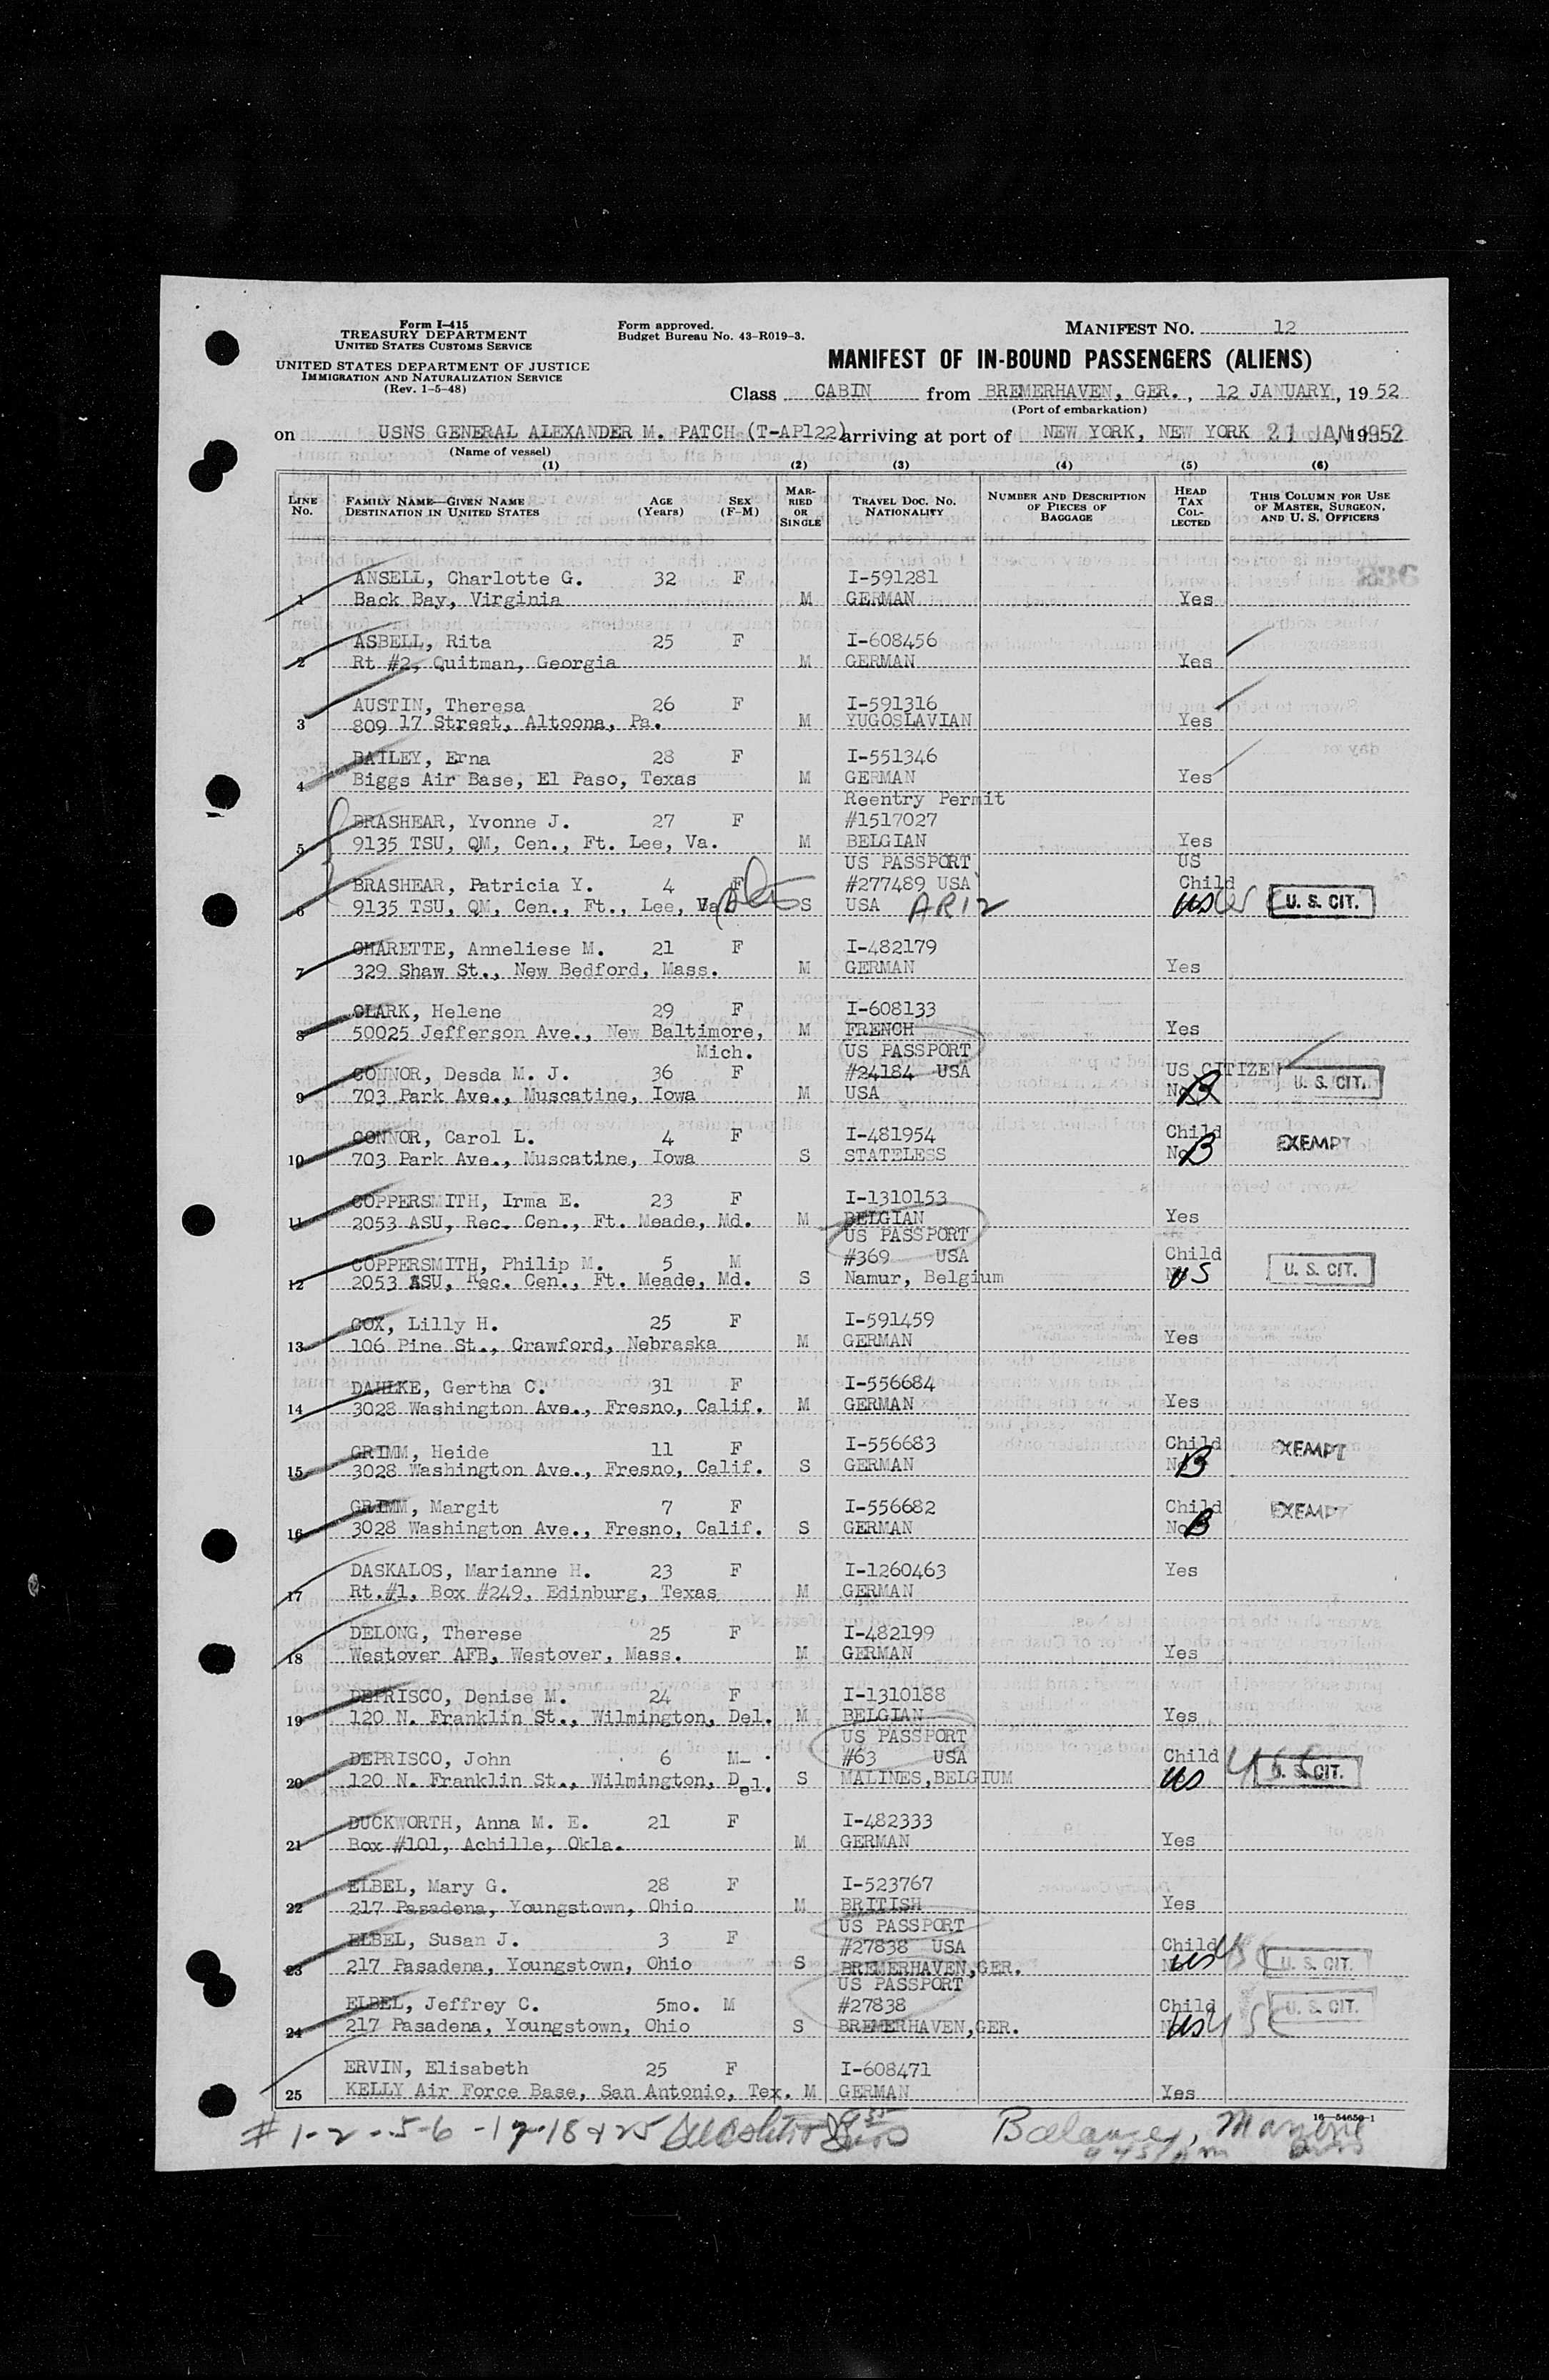 Form I-415
TREASURY DEPARTMENT
UNITED STATES CUSTOMS SERVICE
UNITED STATES DEPARTMENT OF JUSTICE
IMMIGRATION AND NATURALIZATION SERVICE
(Rev. 1-5-48)
Form approved.
Budget Bureau No. 43-R019-3.
MANIFEST NO. 12
MANIFEST OF IN-BOUND PASSENGERS (ALIENS)
Class CABIN from BREMERHAVEN, GER., 12 JANUARY, 1952
(Port of embarkation)
on USNS GENERAL ALEXANDER M. PATCH (T-AP122) arriving at port of NEW YORK, NEW YORK 21 JAN 1952
(Name of vessel)
(1) (2) (3) (4) (5) (6)
LINE No. FAMILY NAME—GIVEN NAME DESTINATION IN UNITED STATES AGE (Years) SEX (F-M) MARRIED OR SINGLE TRAVEL DOC. NO. NATIONALITY NUMBER AND DESCRIPTION OF PIECES OF BAGGAGE HEAD TAX COLLECTED THIS COLUMN FOR USE OF MASTER, SURGEON, AND U. S. OFFICERS
236
ANSELL, Charlotte G. 32 F I-591281
1 Back Bay, Virginia M GERMAN Yes
ASBELL, Rita 25 F I-608456
2 Rt #2, Quitman, Georgia M GERMAN Yes
AUSTIN, Theresa 26 F I-591316
3 809 17 Street, Altoona, Pa. M YUGOSLAVIAN Yes
BAILEY, Erna 28 F I-551346
4 Biggs Air Base, El Paso, Texas M GERMAN Yes
Reentry Permit
BRASHEAR, Yvonne J. 27 F #1517027
5 9135 TSU, QM, Cen., Ft. Lee, Va. M BELGIAN Yes
US PASSPORT US
BRASHEAR, Patricia Y. 4 F #277489 USA Child
6 9135 TSU, QM, Cen., Ft., Lee, Va. S USA AR12 US U. S. CIT.
CHARETTE, Anneliese M. 21 F I-482179
7 329 Shaw St., New Bedford, Mass. M GERMAN Yes
CLARK, Helene 29 F I-608133
8 50025 Jefferson Ave., New Baltimore, M FRENCH Yes
Mich. US PASSPORT
CONNOR, Desda M. J. 36 F #24184 USA US CITIZEN
9 703 Park Ave., Muscatine, Iowa M USA No B U. S. CIT.
CONNOR, Carol L. 4 F I-481954 Child
10 703 Park Ave., Muscatine, Iowa S STATELESS No B EXEMPT
COPPERSMITH, Irma E. 23 F I-1310153
11 2053 ASU, Rec. Cen., Ft. Meade, Md. M BELGIAN Yes
US PASSPORT
COPPERSMITH, Philip M. 5 M #369 USA Child
12 2053 ASU, Rec. Cen., Ft. Meade, Md. S Namur, Belgium US U. S. CIT.
COX, Lilly H. 25 F I-591459
13 106 Pine St., Crawford, Nebraska M GERMAN Yes
DAHLKE, Gertha C. 31 F I-556684
14 3028 Washington Ave., Fresno, Calif. M GERMAN Yes
GRIMM, Heide 11 F I-556683 Child
15 3028 Washington Ave., Fresno, Calif. S GERMAN No B EXEMPT
GRIMM, Margit 7 F I-556682 Child
16 3028 Washington Ave., Fresno, Calif. S GERMAN No B EXEMPT
DASKALOS, Marianne H. 23 F I-1260463 Yes
17 Rt.#1, Box #249, Edinburg, Texas M GERMAN
DELONG, Therese 25 F I-482199
18 Westover AFB, Westover, Mass. M GERMAN Yes
DEPRISCO, Denise M. 24 F I-1310188
19 120 N. Franklin St., Wilmington, Del. M BELGIAN Yes
US PASSPORT
DEPRISCO, John 6 M #63 USA Child
20 120 N. Franklin St., Wilmington, Del. S MALINES, BELGIUM US USC U. S. CIT.
DUCKWORTH, Anna M. E. 21 F I-482333
21 Box #101, Achille, Okla. M GERMAN Yes
ELBEL, Mary G. 28 F I-523767
22 217 Pasadena, Youngstown, Ohio M BRITISH Yes
US PASSPORT
ELBEL, Susan J. 3 F #27838 USA Child
23 217 Pasadena, Youngstown, Ohio S BREMERHAVEN, GER. US USC U. S. CIT.
US PASSPORT
ELBEL, Jeffrey C. 5mo. M #27838 Child
24 217 Pasadena, Youngstown, Ohio S BREMERHAVEN, GER. US USC U. S. CIT.
ERVIN, Elisabeth 25 F I-608471
25 KELLY Air Force Base, San Antonio, Tex. M GERMAN Yes
16—54650-1
# 1-2-5-6-17-18 & 25 Balance,